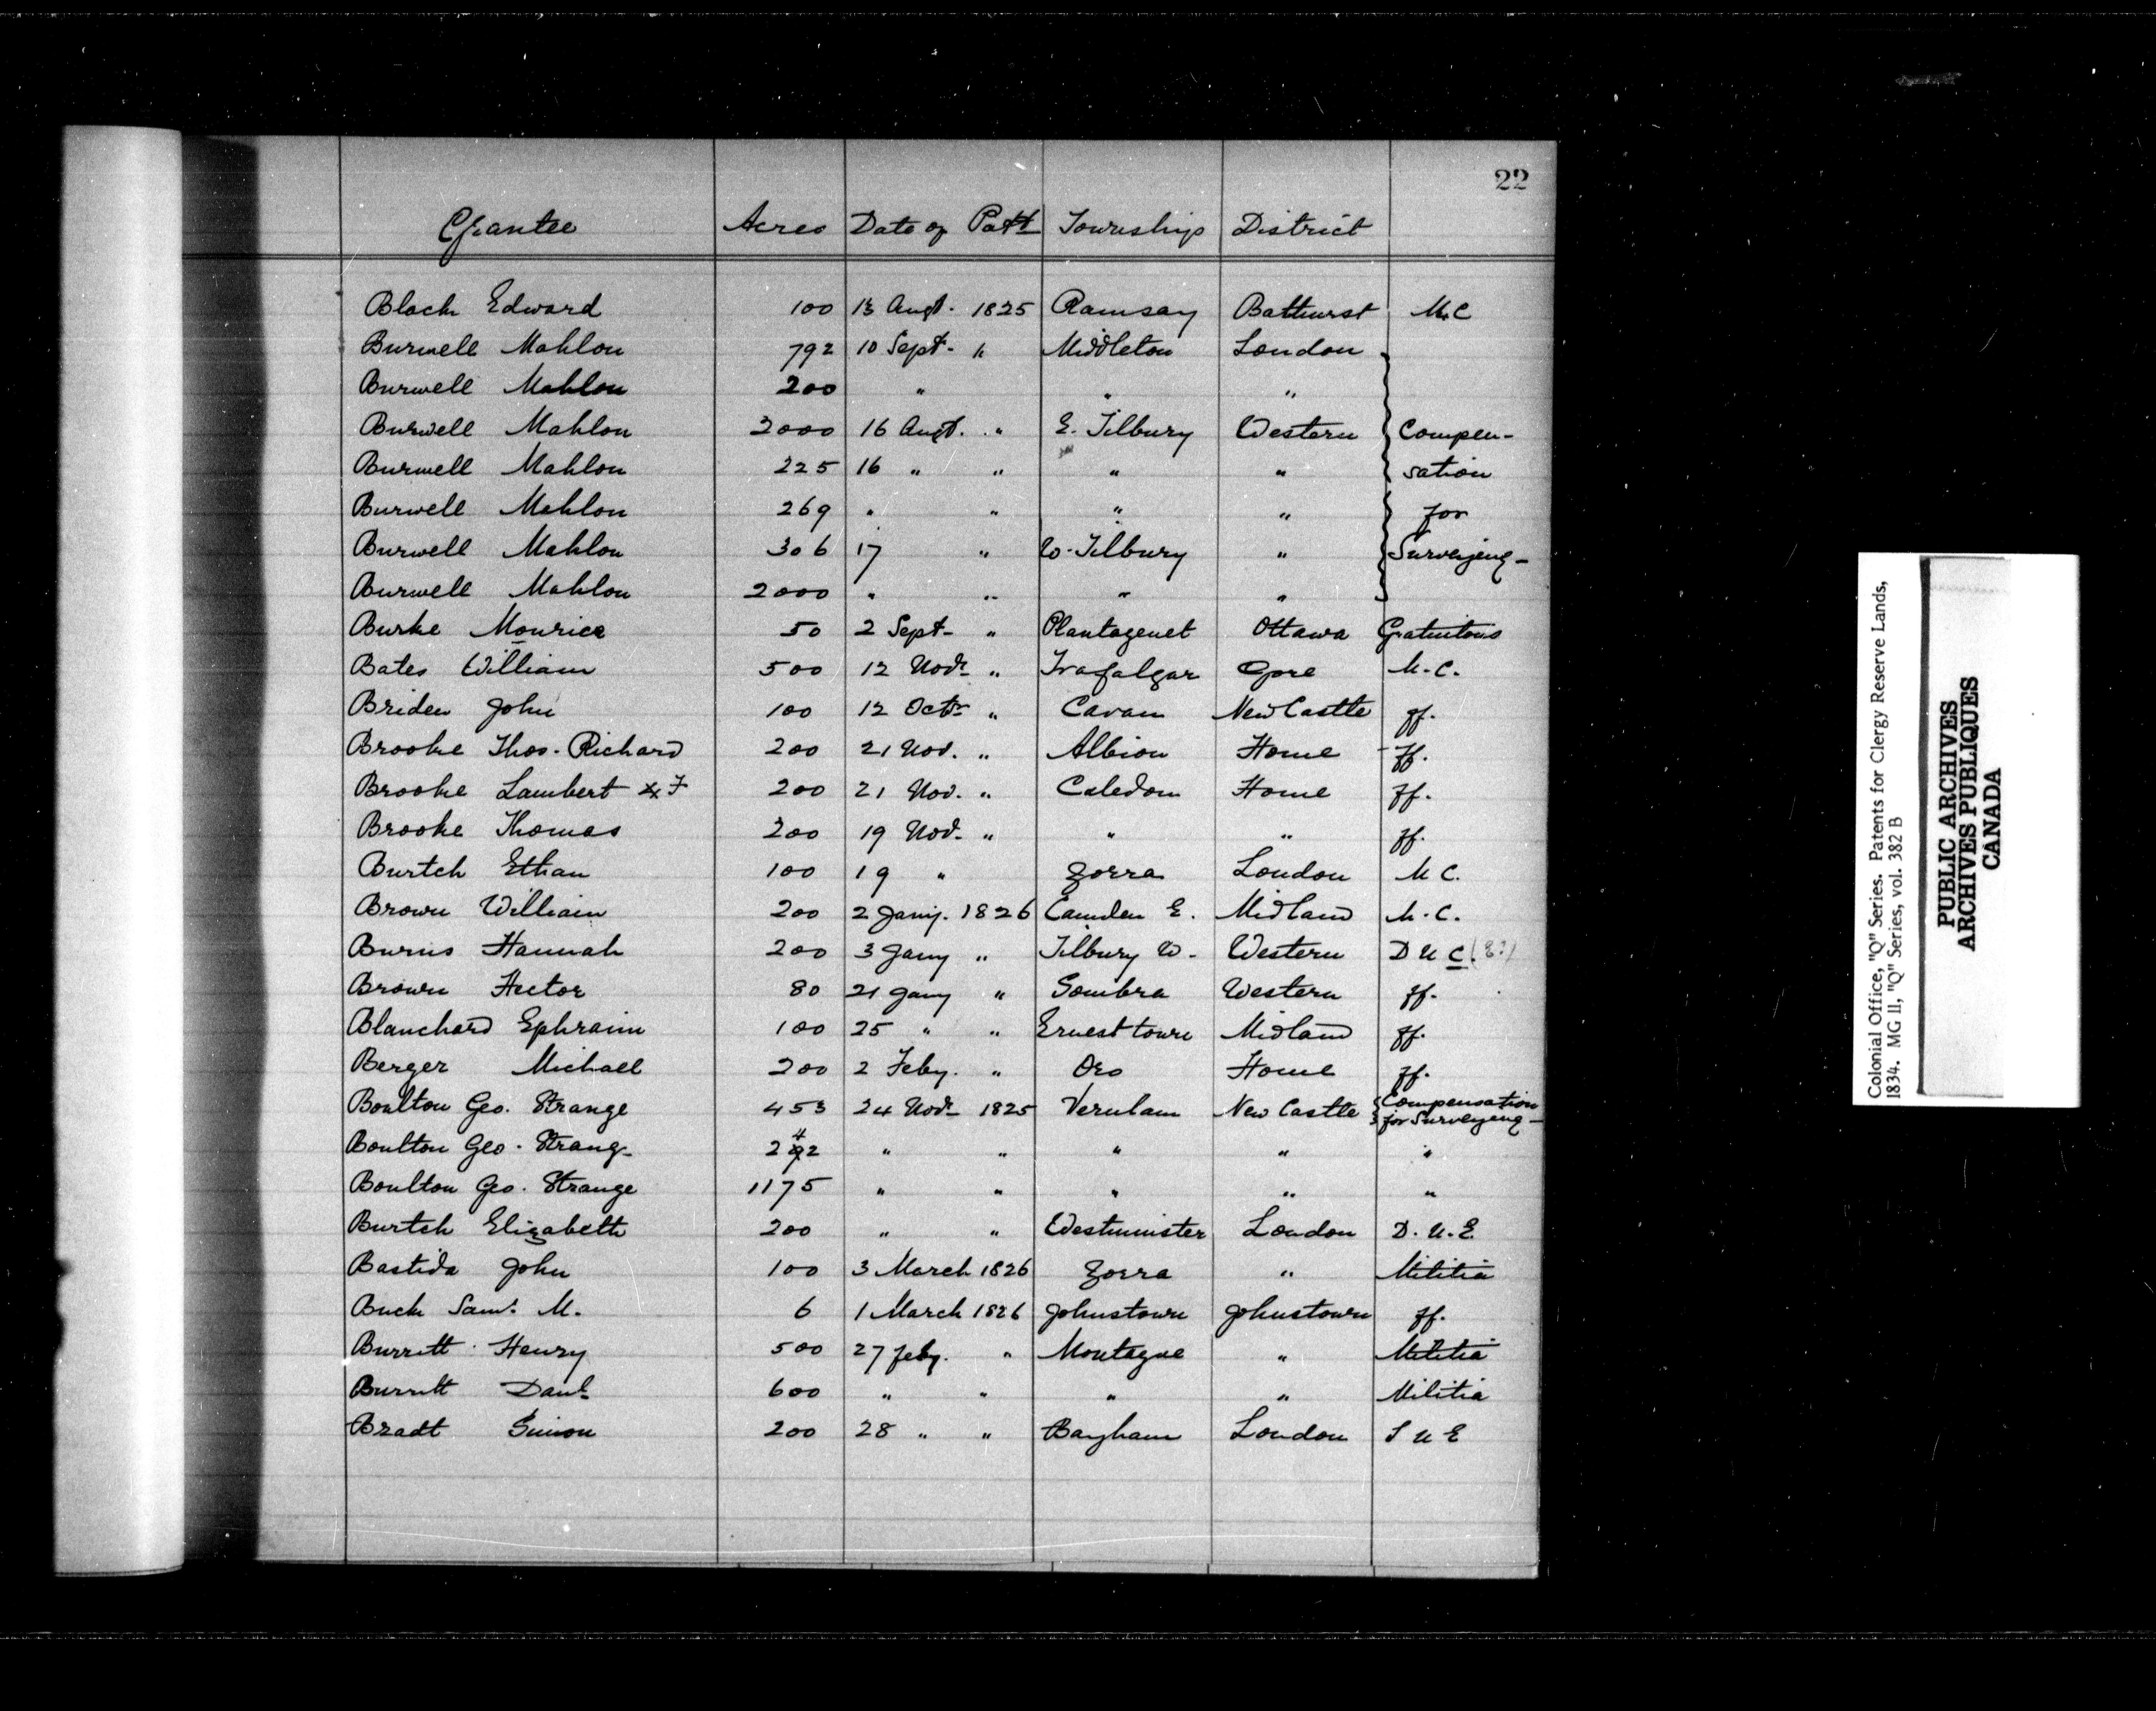 22
Grantee Acres Date of Patt Township District
Black Edward 100 13 Augt. 1825 Ramsay Bathurst M.C
Burwell Mahlon 792 10 Sept. " Middleton London
Burwell Mahlon 200 " " "
Burwell Mahlon 2000 16 Augt. " E. Tilbury Western Compen-
Burwell Mahlon 225 16 " " " " sation
Burwell Mahlon 269 " " " " for
Burwell Mahlon 306 17 " W. Tilbury " Surveying-
Burwell Mahlon 2000 " " " "
Burke Mourice 50 2 Sept- " Plantagenet Ottawa Gratuitous
Bates William 500 12 Novr " Trafalgar Gore M.C.
Briden John 100 12 Octr " Cavan New Castle ff.
Brooke Thos. Richard 200 21 Nov. " Albion Home ff.
Brooke Lambert F 200 21 Nov. " Caledon Home ff.
Brooke Thomas 200 19 Nov. " " " ff.
Burtch Ethan 100 19 " Zorra London M C.
Brown William 200 2 Jany. 1826 Camden E. Midland M.C.
Burns Hannah 200 3 Jany " Tilbury W. Western D U C (E?)
Brown Hector 80 21 Jany " Sombra Western ff.
Blanchard Ephraim 100 25 " " Ernesttown Midland ff.
Berger Michael 200 2 Feby. " Oro Home ff.
Boulton Geo. Strange 453 24 Novr 1825 Verulam New Castle Compensation
for Surveying-
Boulton Geo. Strang- 242 " " " " "
Boulton Geo. Strange 1175 " " " " "
Burtch Elizabeth 200 " " Westminister London D. U. E
Bastida John 100 3 March 1826 Zorra " Militia
Buck Saml. M. 6 1 March 1826 Johnstown Johnstown ff.
Burritt Henry 500 27 Feby. " Montague " Militia
Burritt Danl 600 " " " " Militia
Bradt Simon 200 28 " " Bayham London S U E
Colonial Office, "Q" Series. Patents for Clergy Reserve Lands,
1834. MG 11, "Q" Series, vol. 382 B
PUBLIC ARCHIVES
ARCHIVES PUBLIQUES
CANADA